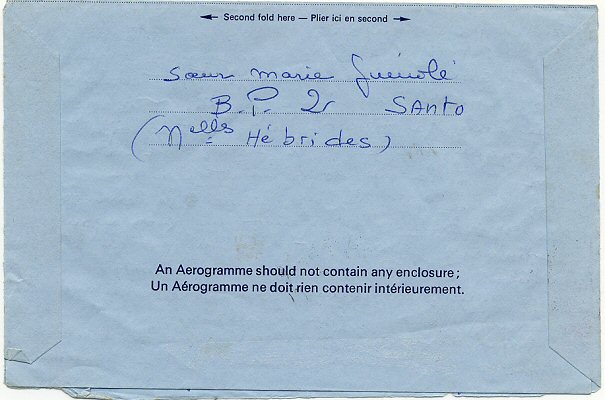 Second fold here — Plier ici en second
Sœur marie Guénolé
B.P. 2r SANTO
(Nelles Hébrides)
An Aerogramme should not contain any enclosure;
Un Aérogramme ne doit rien contenir intérieurement.